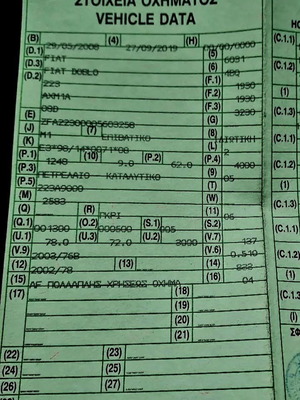 ΣΤΟΙΧΕΙΑ ΟΧΗΜΑΤΟΣ
VEHICLE DATA
(B) 29/05/2008 (4) 27/09/2019 (H) 00/00/0000
(D.1) FIAT (5) 6031
(D.3) FIAT DOBLO (6) 4BQ
(D.2) 223 (F.1) 1930
AXM1A (F.2) 1930
08B (F.3) 3230
(E) ZFA22300005603258 (G)
(J) M1 (7) ΕΠΙΒΑΤΙΚΟ (8) ΙΔΙΩΤΙΚΗ
(K) (L) 2
(P.1) 1248 (10) 9.0 (P.2) 62.0 (P.4) 4000
(P.3) ΠΕΤΡΕΛΑΙΟ ΚΑΤΑΛΥΤΙΚΟ (9) 05
(P.5) 223A9000 (T)
(M) 2583 (W)
(Q) (R) ΓΚΡΙ (11) 06
(Q.1) 001300 (O.2) 000500 (S.1) 005 (S.2)
(U.1) 78.0 (U.2) 72.0 3000 (V.7) 137
(V.9) 2003/76B (V.6) 0.510
(12) 2002/78 (13) (14) 888
(15) AF ΠΟΛΛΑΠΛΗΣ ΧΡΗΣΕΩΣ ΟΧΗΜΑ (16) 04
(17) (18)
(19)
(20)
(21)
(22) (23)
(24) (25)
(26) (27)
(C.1.1)
(C.1.2)
(C.1.3)
(C.1.1)
(C.1.2)
(C.1.3)